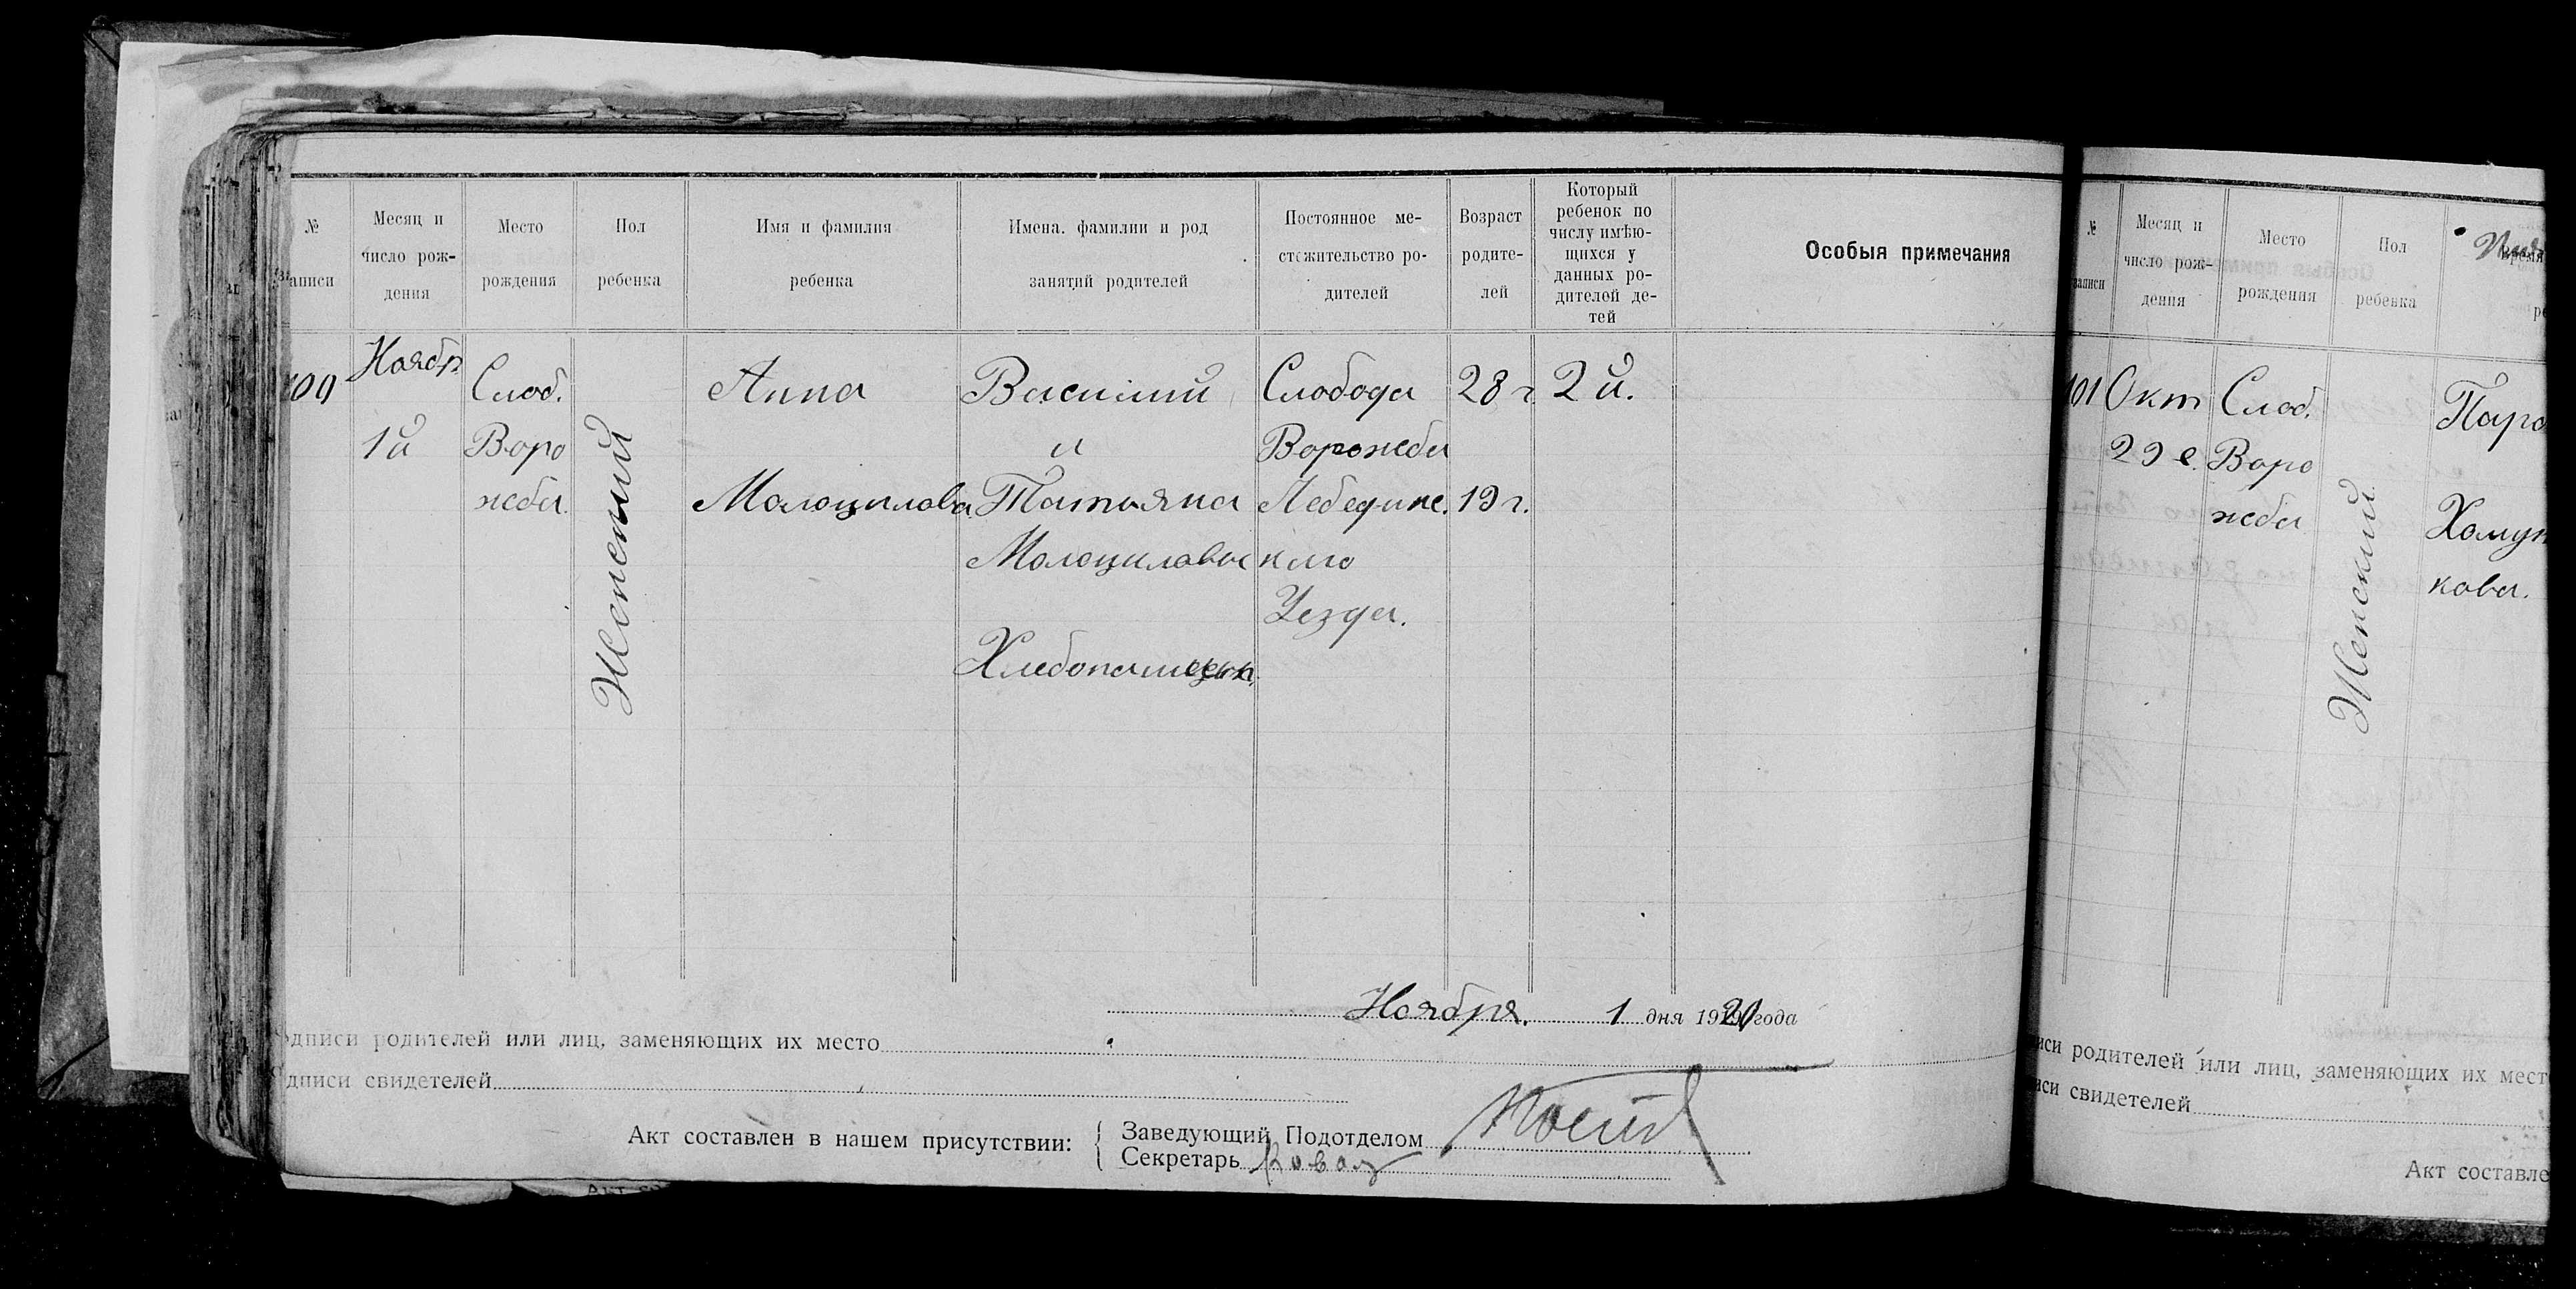 №
аписи
Месяц и
число рож-
дения
Место
рождения
Пол
ребенка
Имя и фамилия
ребенка
Имена. фамилии и род
занятий родителей
Постоянное ме-
стожительство ро-
дителей
Возраст
родите-
лей
Который
ребенок по
числу имѣю-
щихся у
данных ро-
дителой де-
тей
Особыя примечания
100
Ноябр
1й
Слоб.
Воро
жба.
Женский
Анна
Молоцилова
Василий
и
Татьяна
Молоциловы
Слобода
Ворожба
Лебединс.
кого
Уезда.
28 г.
19 г.
2й.
Ноября. 1 дня 1920 года
одписи родителей или лиц, заменяющих их место
одписи свидетелей
Акт составлен в нашем присутствии:
Заведующий Подотделом
Секретарь Коваль
№
записи
Месяц и
число рож-
дения
Место
рождения
Пол
ребенка
101
Окт
29 е.
Слоб.
Воро
жба
Женский
кова.
иси родителей или лиц, заменяющих их мест
иси свидетелей
Акт составле